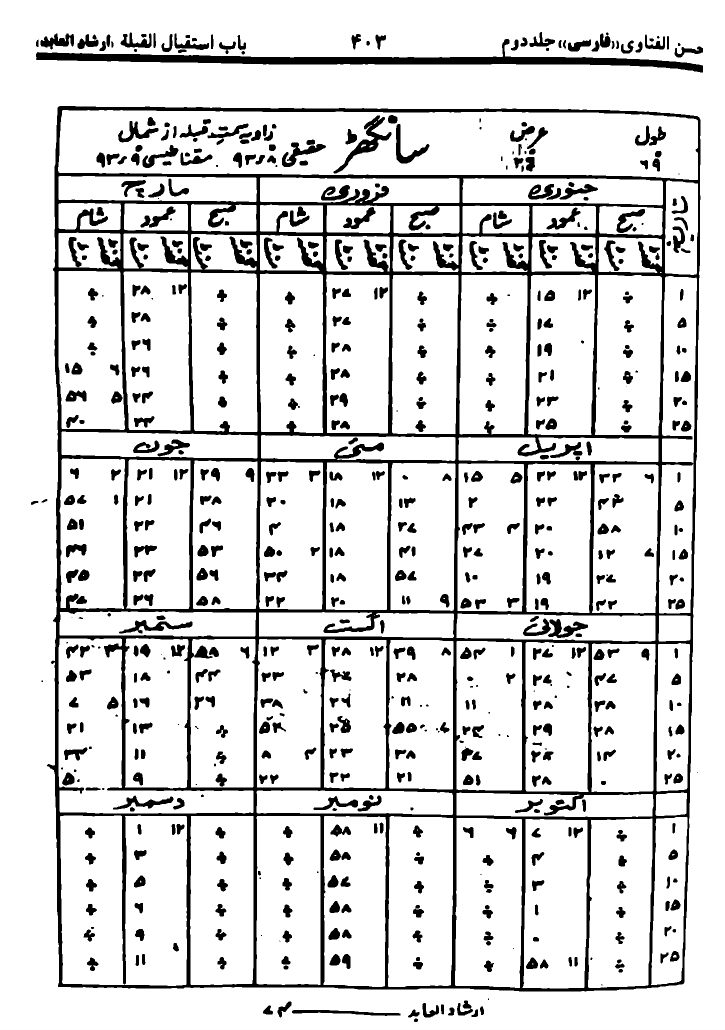 حسن الفتاوی ((فارسی)) جلد دوم ۴۰۳ باب استقبال القبلة (ارشاد العابد)
طول عرض سانگھڑ زاویہ سمت قبلہ از شمال
۶۹ حقیقی ۹۳٫۸ مقناطیسی ۹۳٫۹
تاریخ جنوری فروری مارچ
صبح عمود شام صبح عمود شام صبح عمود شام
گھنٹہ منٹ گھنٹہ منٹ گھنٹہ منٹ گھنٹہ منٹ گھنٹہ منٹ گھنٹہ منٹ گھنٹہ منٹ گھنٹہ منٹ گھنٹہ منٹ
۱ ÷ ۱۲ ۱۵ ÷ ÷ ۱۲ ۲۷ ÷ ÷ ۱۲ ۲۸ ÷
۵ ÷ ۱۷ ÷ ÷ ۲۷ ÷ ÷ ۲۸ ÷
۱۰ ÷ ۱۹ ÷ ÷ ۲۸ ÷ ÷ ۲۶ ÷
۱۵ ÷ ۲۱ ÷ ÷ ۲۸ ÷ ÷ ۲۶ ۶ ۱۵
۲۰ ÷ ۲۳ ÷ ÷ ۲۹ ÷ ÷ ۲۴ ۵ ۵۶
۲۵ ÷ ۲۵ ÷ ÷ ۲۸ ÷ ÷ ۲۳ ۴۰
اپریل مئی جون
۱ ۶ ۳۳ ۱۲ ۲۲ ۵ ۱۵ ۸ ۰ ۱۲ ۱۸ ۳ ۳۳ ۹ ۲۹ ۱۲ ۲۱ ۲ ۶
۵ ۴۳ ۲۲ ۲ ۱۳ ۱۸ ۲۰ ۳۸ ۲۱ ۱ ۵۷
۱۰ ۵۸ ۲۰ ۴ ۴۳ ۲۷ ۱۸ ۴ ۴۶ ۲۲ ۵۱
۱۵ ۷ ۱۲ ۲۰ ۲۷ ۴۱ ۱۸ ۲ ۵۰ ۵۳ ۲۳ ۴۶
۲۰ ۲۷ ۱۹ ۱۰ ۵۷ ۱۸ ۳۴ ۵۶ ۲۴ ۴۵
۲۵ ۴۲ ۱۹ ۳ ۵۳ ۹ ۱۱ ۲۰ ۲۲ ۵۸ ۲۶ ۴۷
جولائی اگست ستمبر
۱ ۹ ۵۳ ۱۲ ۲۷ ۱ ۵۴ ۸ ۳۹ ۱۲ ۲۸ ۳ ۱۲ ۶ ۵۸ ۱۲ ۱۹ ۴ ۴۲
۵ ۴۷ ۲۷ ۲ ۰ ۲۸ ۲۷ ۲۳ ۴۴ ۱۸ ۵۳
۱۰ ۳۸ ۲۸ ۱۱ ۱۱ ۲۶ ۳۸ ۲۶ ۱۶ ۵ ۷
۱۵ ۲۸ ۲۹ ۲۴ ۷ ۵۵ ۲۵ ۵۲ ÷ ۱۳ ۲۱
۲۰ ۱۴ ۲۸ ۳۷ ۳۸ ۲۳ ۴ ۸ ÷ ۱۱ ۳۴
۲۵ ۰ ۲۸ ۵۱ ۲۱ ۲۲ ۲۲ ÷ ۹ ۵۰
اکتوبر نومبر دسمبر
۱ ÷ ۱۲ ۷ ۶ ۶ ÷ ۱۱ ۵۸ ÷ ÷ ۱۲ ۱ ÷
۵ ÷ ۴ ÷ ÷ ۵۸ ÷ ÷ ۳ ÷
۱۰ ÷ ۳ ÷ ÷ ۵۷ ÷ ÷ ۵ ÷
۱۵ ÷ ۱ ÷ ÷ ۵۸ ÷ ÷ ۶ ÷
۲۰ ÷ ۰ ÷ ÷ ۵۸ ÷ ÷ ۹ ÷
۲۵ ÷ ۱۱ ۵۸ ÷ ÷ ۵۹ ÷ ÷ ۱۱ ÷
ارشاد العابد ــــــــ ۷۴